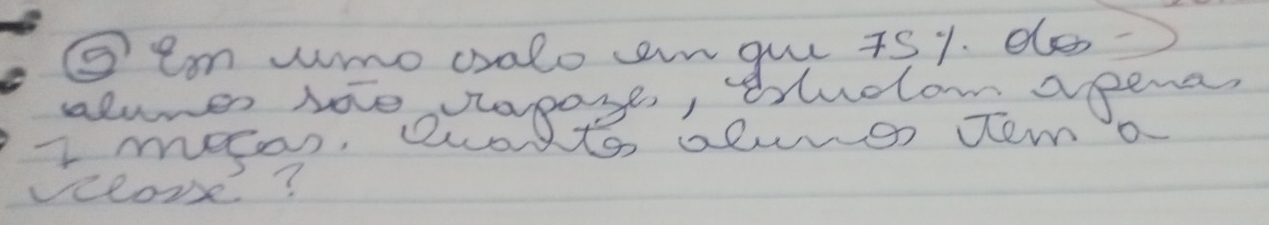 ⑨ Em uma sala em que 75% dos
alunos são rapazes, Estudam apenas
7 moças. Quantos alunos tem a
classe?